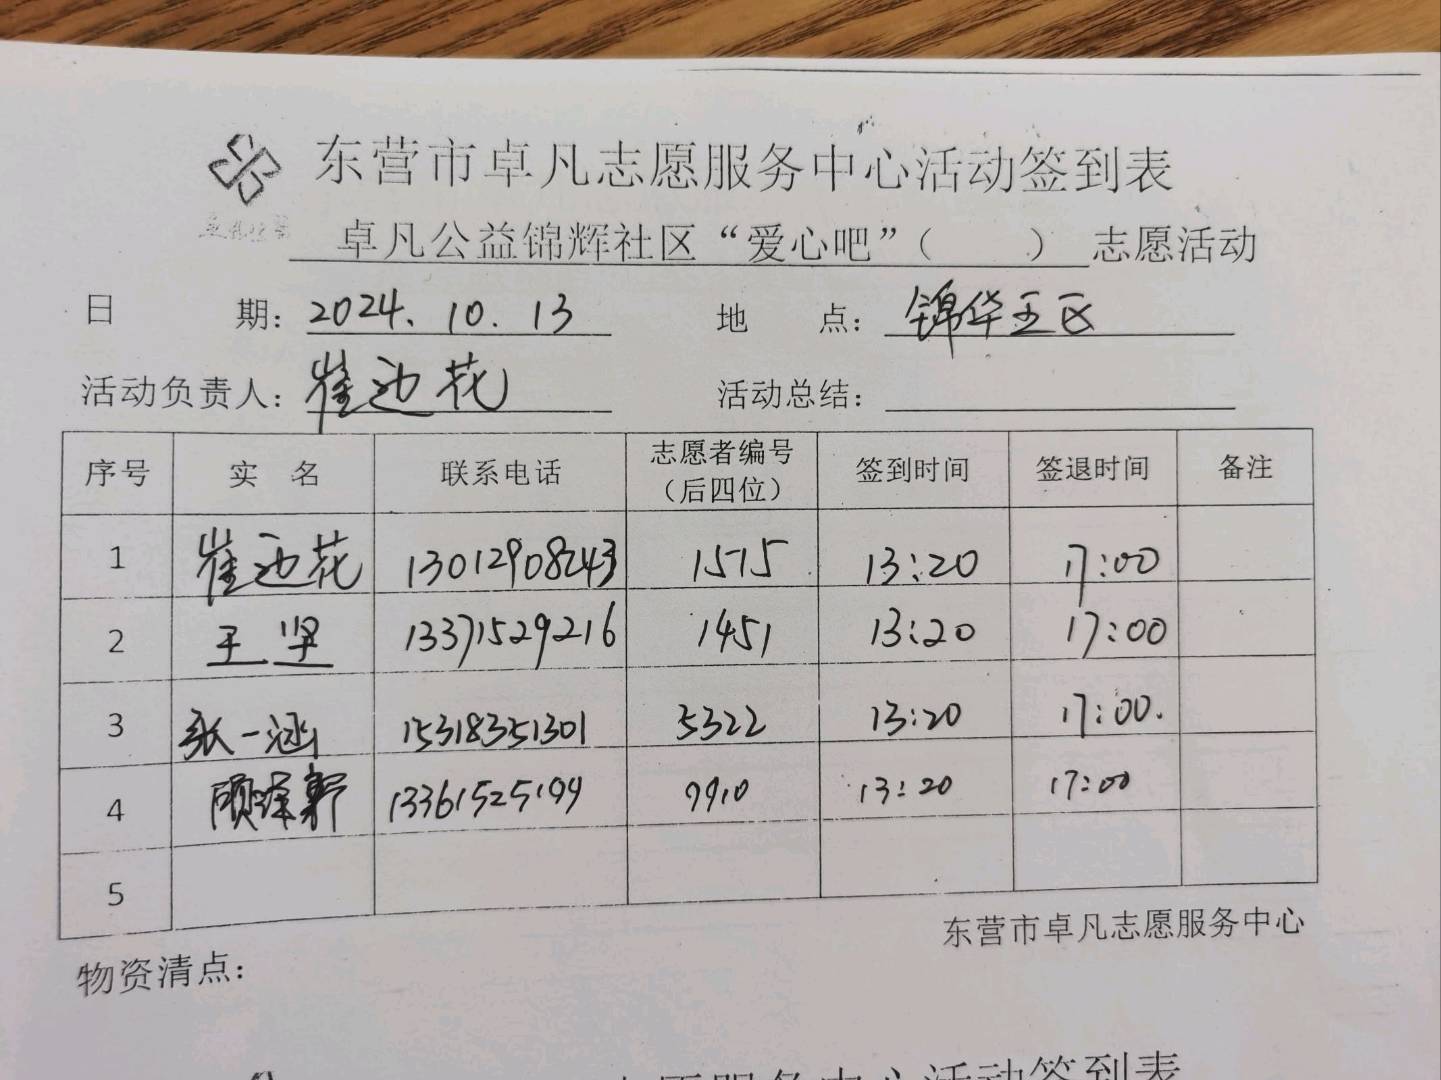 东营市卓凡志愿服务中心活动签到表
卓凡公益锦辉社区“爱心吧”（ ）志愿活动
日 期：2024.10.13 地 点：锦华五区
活动负责人：崔边花 活动总结：
序号 实 名 联系电话 志愿者编号（后四位） 签到时间 签退时间 备注
1 崔边花 13012908243 1575 13:20 17:00
2 王坚 13371529216 1451 13:20 17:00
3 张一涵 15318351301 5322 13:20 17:00.
4 顾泽轩 13361525199 9910 13:20 17:00
5
东营市卓凡志愿服务中心
物资清点：
志愿服务中心活动签到表